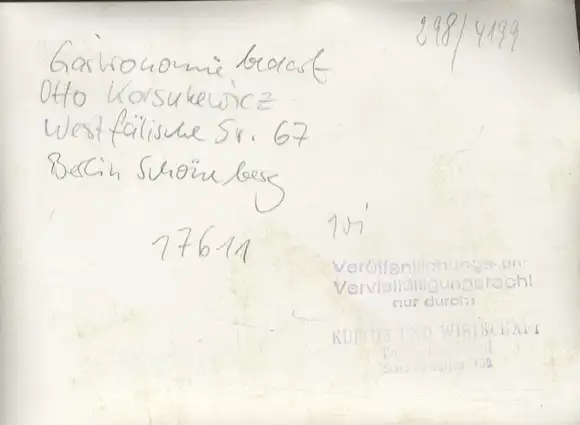 298/4199
Gastronomie bedarf
Otto Korsukewicz
Westfälische Sr. 67
Berlin Schöneberg
17611
Veröffentlichungs- un
Vervielfältigungsrecht
nur durch
KULTUR UND WIRTSCHAFT